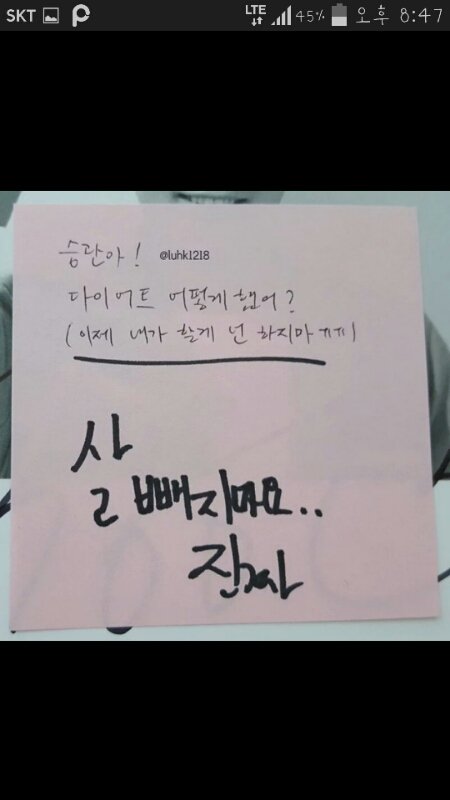 SKT LTE 45% 오후 8:47
승관아! @luhk1218
다이어트 어떻게 했어?
(이제 내가 할게 넌 하지마 ㅠㅠ)
살
빼지마요..
진짜